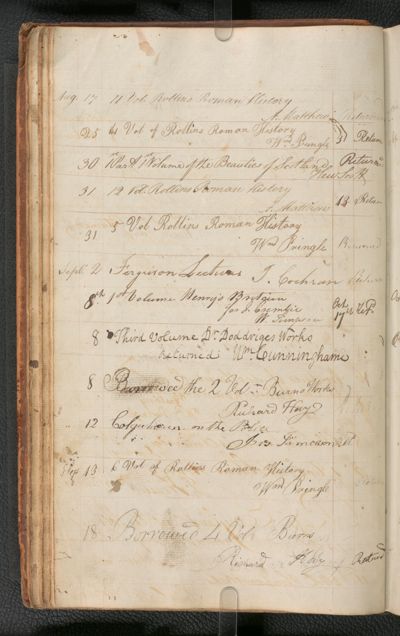 Aug. 17 11 Vol Rollins Roman History
A. Matthew Returned
25 4 Vol of Rollins Roman History
Wm Pringle 31 Return
30 Volume of the Beauties of Scotland Return
31 12 Vol Rollins Roman History
A. Matthew 13 Return
31 5 Vol Rollins Roman History
Wm Pringle Returned
Sept 2 Ferguson Lectures J. Cochran
8th 1st Volume Henry's Britain
for J. Oct 17th Retd
8 Third Volume Dr Doddriges Works
Returned Wm Cunninghame
8 Borrowed the 2 Vol Burns Works
Richard Hay
12 Colquhoun on the Police
Jno
Sep 13 6 Vol of Rollins Roman History
Wm Pringle
18 Borrowed 4 Vol Burns
Richard Hay Returned